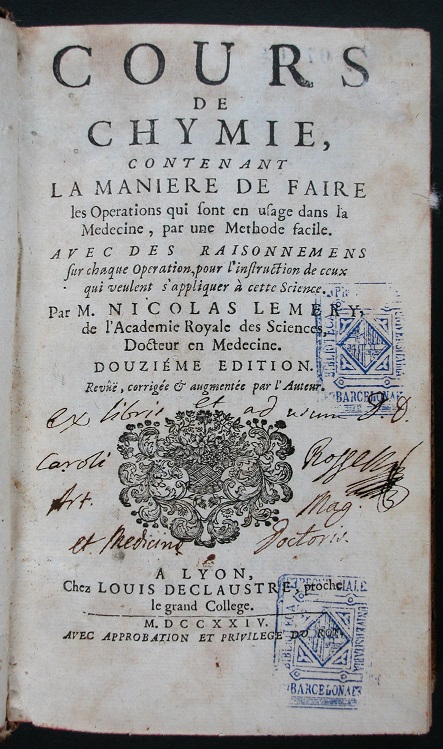 COURS
DE
CHYMIE,
CONTENANT
LA MANIERE DE FAIRE
les Operations qui ſont en uſage dans la
Medecine, par une Methode facile.
AVEC DES RAISONNEMENS
ſur chaque Operation, pour l'inſtruction de ceux
qui veulent s'appliquer à cette Science.
Par M. NICOLAS LEMERY,
de l'Academie Royale des Sciences,
Docteur en Medecine.
DOUZIÉME EDITION.
Revûë, corrigée & augmentée par l'Auteur.
ex libris et ad usum D. D.
Caroli
Art. Mag.
et Medicinæ Doctoris
A LYON,
Chez LOUIS DECLAUSTRE, proche
le grand College.
M. DCCXXIV.
AVEC APPROBATION ET PRIVILEGE DU ROY.
BIBLIOTHECA
BARCELONAE
BIBLIOTHECA
BARCELONAE